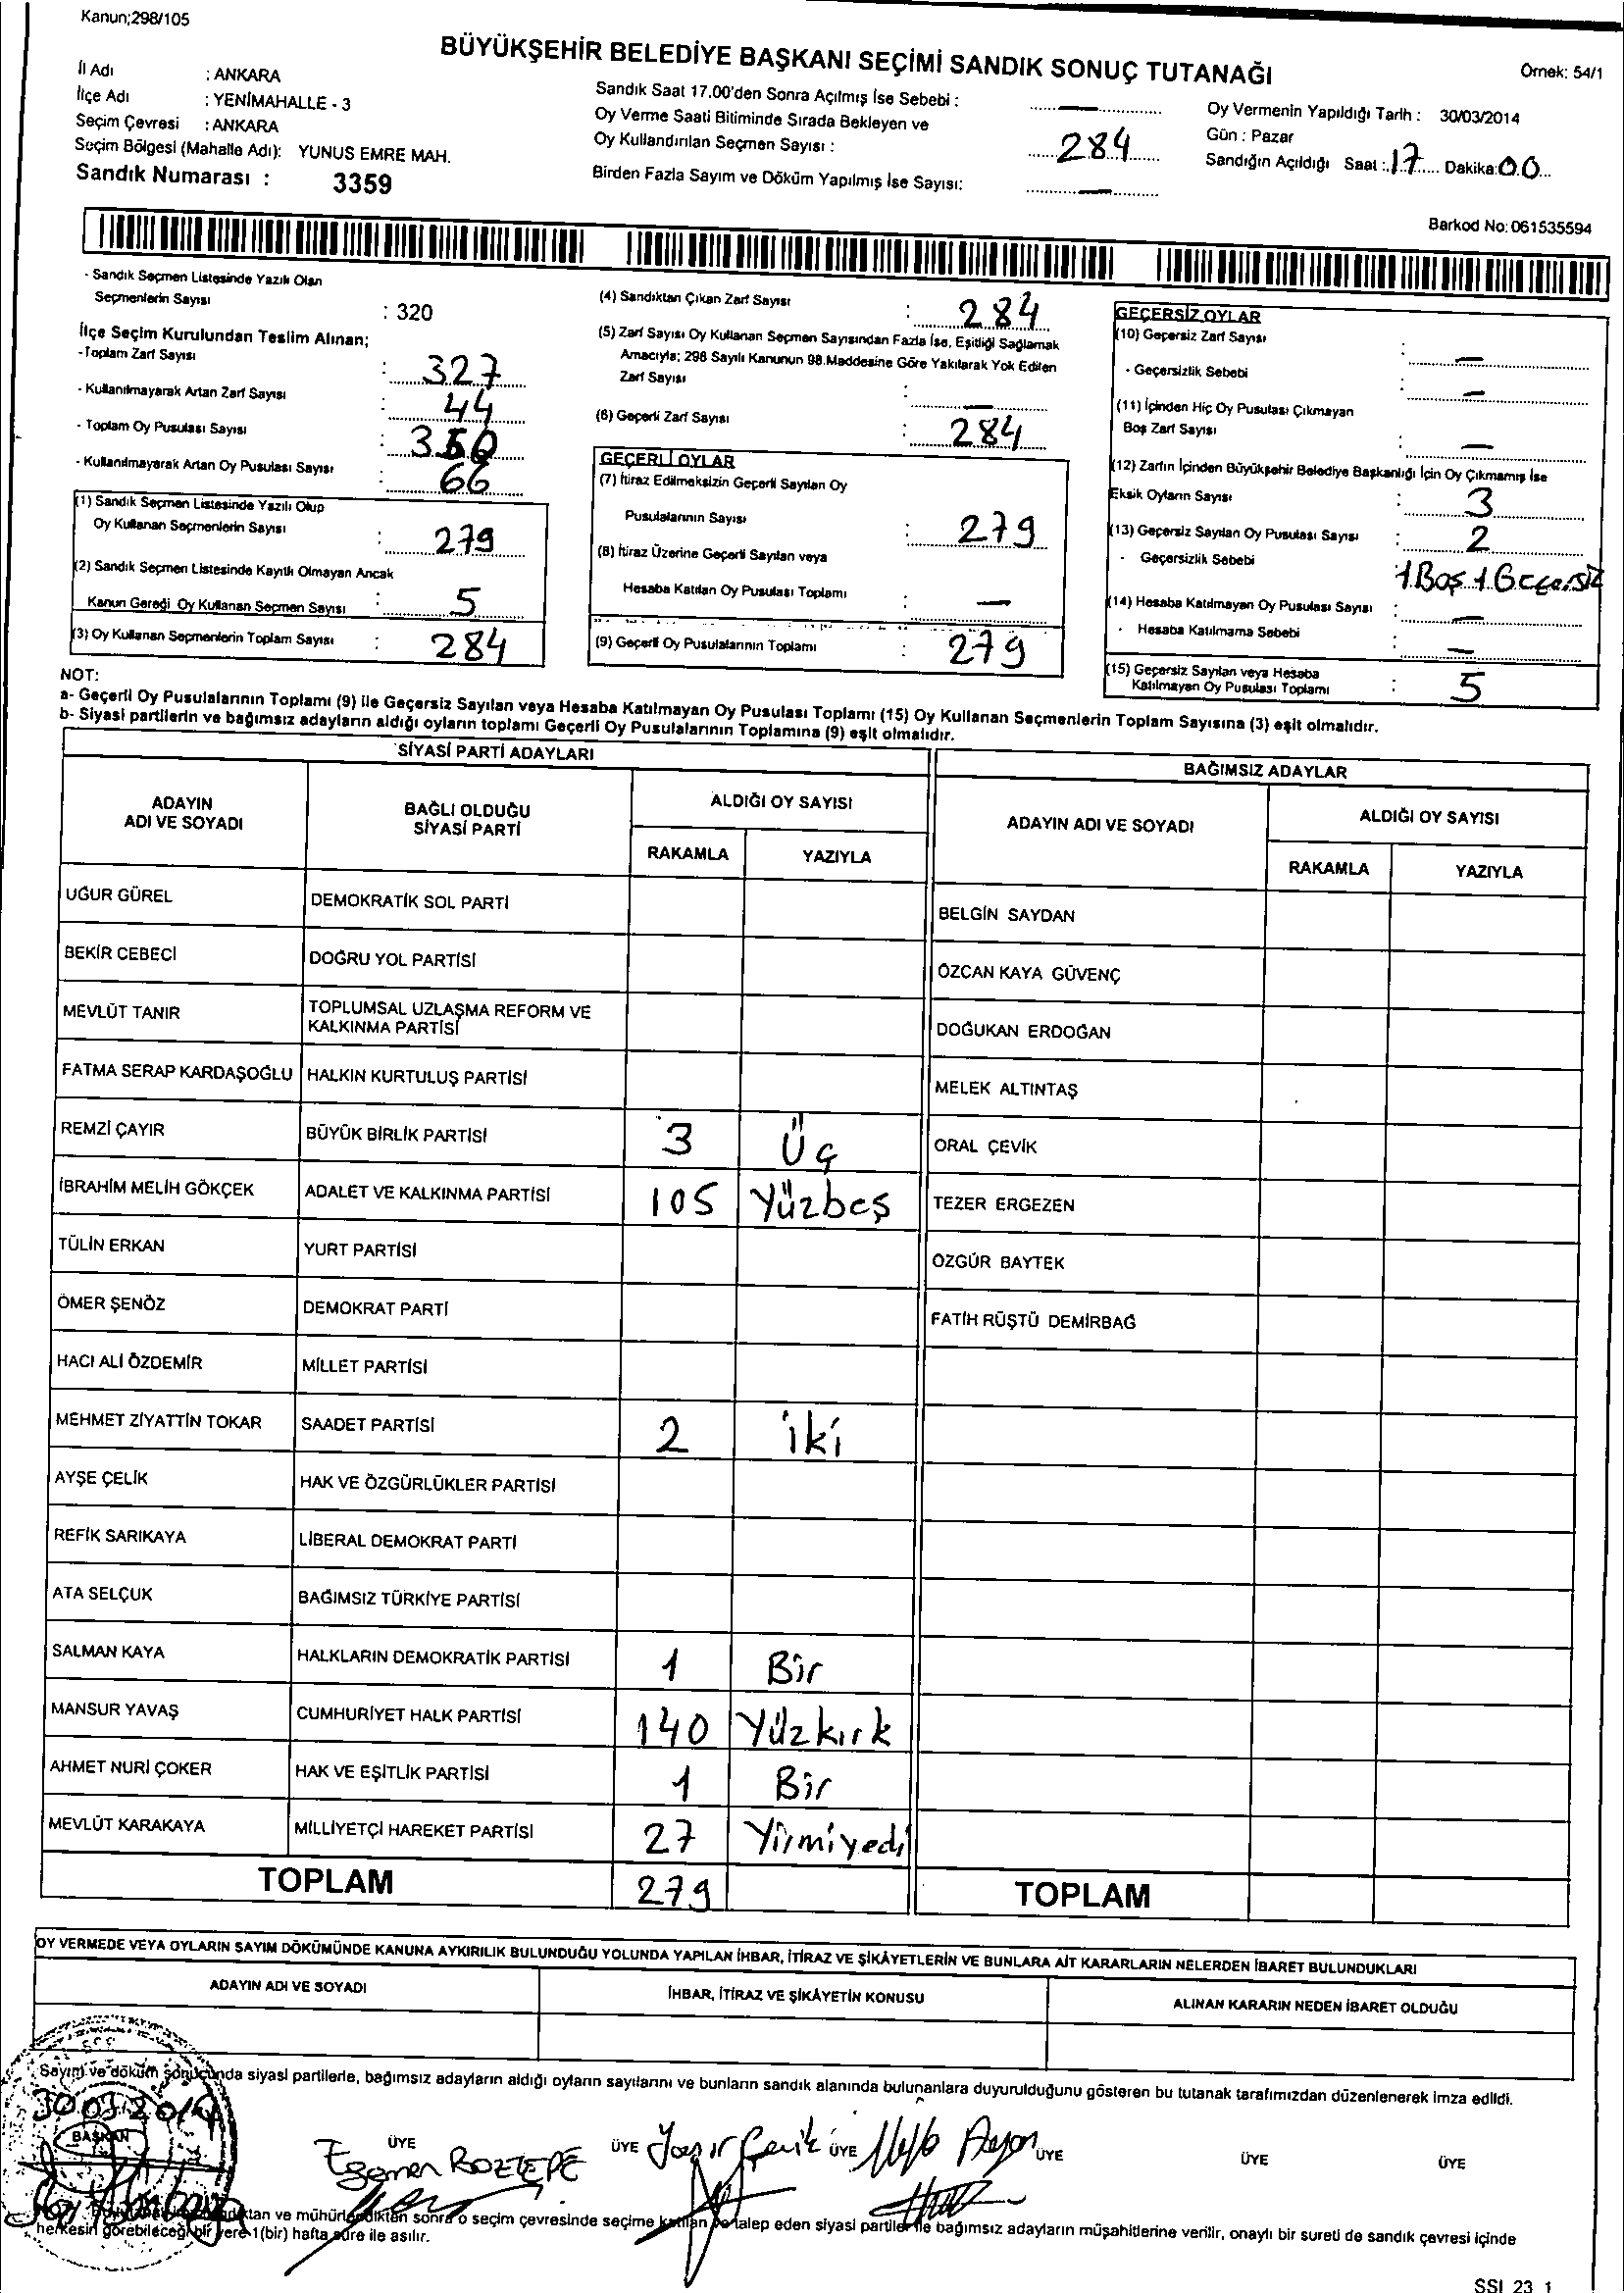 Kanun;298/105
BÜYÜKŞEHİR BELEDİYE BAŞKANI SEÇİMİ SANDIK SONUÇ TUTANAĞI
Örnek: 54/1
İl Adı : ANKARA
İlçe Adı : YENİMAHALLE - 3
Seçim Çevresi : ANKARA
Seçim Bölgesi (Mahalle Adı): YUNUS EMRE MAH.
Sandık Numarası : 3359
Sandık Saat 17.00'den Sonra Açılmış İse Sebebi : —
Oy Verme Saati Bitiminde Sırada Bekleyen ve
Oy Kullandırılan Seçmen Sayısı : 284
Birden Fazla Sayım ve Döküm Yapılmış İse Sayısı: —
Oy Vermenin Yapıldığı Tarih : 30/03/2014
Gün : Pazar
Sandığın Açıldığı Saat : 17 Dakika: 00
Barkod No: 061535594
- Sandık Seçmen Listesinde Yazılı Olan
Seçmenlerin Sayısı : 320
İlçe Seçim Kurulundan Teslim Alınan;
- Toplam Zarf Sayısı : 327
- Kullanılmayarak Artan Zarf Sayısı : 44
- Toplam Oy Pusulası Sayısı : 350
- Kullanılmayarak Artan Oy Pusulası Sayısı : 66
(1) Sandık Seçmen Listesinde Yazılı Olup
Oy Kullanan Seçmenlerin Sayısı : 279
(2) Sandık Seçmen Listesinde Kayıtlı Olmayan Ancak
Kanun Gereği Oy Kullanan Seçmen Sayısı : 5
(3) Oy Kullanan Seçmenlerin Toplam Sayısı : 284
(4) Sandıktan Çıkan Zarf Sayısı : 284
(5) Zarf Sayısı Oy Kullanan Seçmen Sayısından Fazla İse, Eşitliği Sağlamak
Amacıyla; 298 Sayılı Kanunun 98.Maddesine Göre Yakılarak Yok Edilen
Zarf Sayısı : —
(6) Geçerli Zarf Sayısı : 284
GEÇERLİ OYLAR
(7) İtiraz Edilmeksizin Geçerli Sayılan Oy
Pusulalarının Sayısı : 279
(8) İtiraz Üzerine Geçerli Sayılan veya
Hesaba Katılan Oy Pusulası Toplamı : —
(9) Geçerli Oy Pusulalarının Toplamı : 279
GEÇERSİZ OYLAR
(10) Geçersiz Zarf Sayısı : —
- Geçersizlik Sebebi : —
(11) İçinden Hiç Oy Pusulası Çıkmayan
Boş Zarf Sayısı : —
(12) Zarfın İçinden Büyükşehir Belediye Başkanlığı İçin Oy Çıkmamış İse
Eksik Oyların Sayısı : 3
(13) Geçersiz Sayılan Oy Pusulası Sayısı : 2
- Geçersizlik Sebebi : 1 Boş 1 Geçersiz
(14) Hesaba Katılmayan Oy Pusulası Sayısı : —
- Hesaba Katılmama Sebebi : —
(15) Geçersiz Sayılan veya Hesaba
Katılmayan Oy Pusulası Toplamı : 5
NOT:
a- Geçerli Oy Pusulalarının Toplamı (9) ile Geçersiz Sayılan veya Hesaba Katılmayan Oy Pusulası Toplamı (15) Oy Kullanan Seçmenlerin Toplam Sayısına (3) eşit olmalıdır.
b- Siyasi partilerin ve bağımsız adayların aldığı oyların toplamı Geçerli Oy Pusulalarının Toplamına (9) eşit olmalıdır.
SİYASİ PARTİ ADAYLARI
ADAYIN ADI VE SOYADI
BAĞLI OLDUĞU SİYASİ PARTİ
ALDIĞI OY SAYISI
RAKAMLA YAZIYLA
UĞUR GÜREL DEMOKRATİK SOL PARTİ
BEKİR CEBECİ DOĞRU YOL PARTİSİ
MEVLÜT TANIR TOPLUMSAL UZLAŞMA REFORM VE KALKINMA PARTİSİ
FATMA SERAP KARDAŞOĞLU HALKIN KURTULUŞ PARTİSİ
REMZİ ÇAYIR BÜYÜK BİRLİK PARTİSİ 3 Üç
İBRAHİM MELİH GÖKÇEK ADALET VE KALKINMA PARTİSİ 105 Yüzbeş
TÜLİN ERKAN YURT PARTİSİ
ÖMER ŞENÖZ DEMOKRAT PARTİ
HACI ALİ ÖZDEMİR MİLLET PARTİSİ
MEHMET ZİYATTİN TOKAR SAADET PARTİSİ 2 iki
AYŞE ÇELİK HAK VE ÖZGÜRLÜKLER PARTİSİ
REFİK SARIKAYA LİBERAL DEMOKRAT PARTİ
ATA SELÇUK BAĞIMSIZ TÜRKİYE PARTİSİ
SALMAN KAYA HALKLARIN DEMOKRATİK PARTİSİ 1 Bir
MANSUR YAVAŞ CUMHURİYET HALK PARTİSİ 140 Yüzkırk
AHMET NURİ ÇOKER HAK VE EŞİTLİK PARTİSİ 1 Bir
MEVLÜT KARAKAYA MİLLİYETÇİ HAREKET PARTİSİ 27 Yirmiyedi
TOPLAM 279
BAĞIMSIZ ADAYLAR
ADAYIN ADI VE SOYADI
ALDIĞI OY SAYISI
RAKAMLA YAZIYLA
BELGİN SAYDAN
ÖZCAN KAYA GÜVENÇ
DOĞUKAN ERDOĞAN
MELEK ALTINTAŞ
ORAL ÇEVİK
TEZER ERGEZEN
ÖZGÜR BAYTEK
FATİH RÜŞTÜ DEMİRBAĞ
TOPLAM
OY VERMEDE VEYA OYLARIN SAYIM DÖKÜMÜNDE KANUNA AYKIRILIK BULUNDUĞU YOLUNDA YAPILAN İHBAR, İTİRAZ VE ŞİKÂYETLERİN VE BUNLARA AİT KARARLARIN NELERDEN İBARET BULUNDUKLARI
ADAYIN ADI VE SOYADI
İHBAR, İTİRAZ VE ŞİKÂYETİN KONUSU
ALINAN KARARIN NEDEN İBARET OLDUĞU
Sayım ve döküm sonucunda siyasi partilerle, bağımsız adayların aldığı oyların sayılarını ve bunların sandık alanında bulunanlara duyurulduğunu gösteren bu tutanak tarafımızdan düzenlenerek imza edildi.
30.03.2014
BAŞKAN ÜYE ÜYE ÜYE ÜYE ÜYE ÜYE
Egemen BOZTEPE
ve mühürlendikten sonra o seçim çevresinde seçime katılan ve talep eden siyasi partiler ile bağımsız adayların müşahitlerine verilir, onaylı bir sureti de sandık çevresi içinde
herkesin görebileceği bir yere 1(bir) hafta süre ile asılır.
SSI 23 1